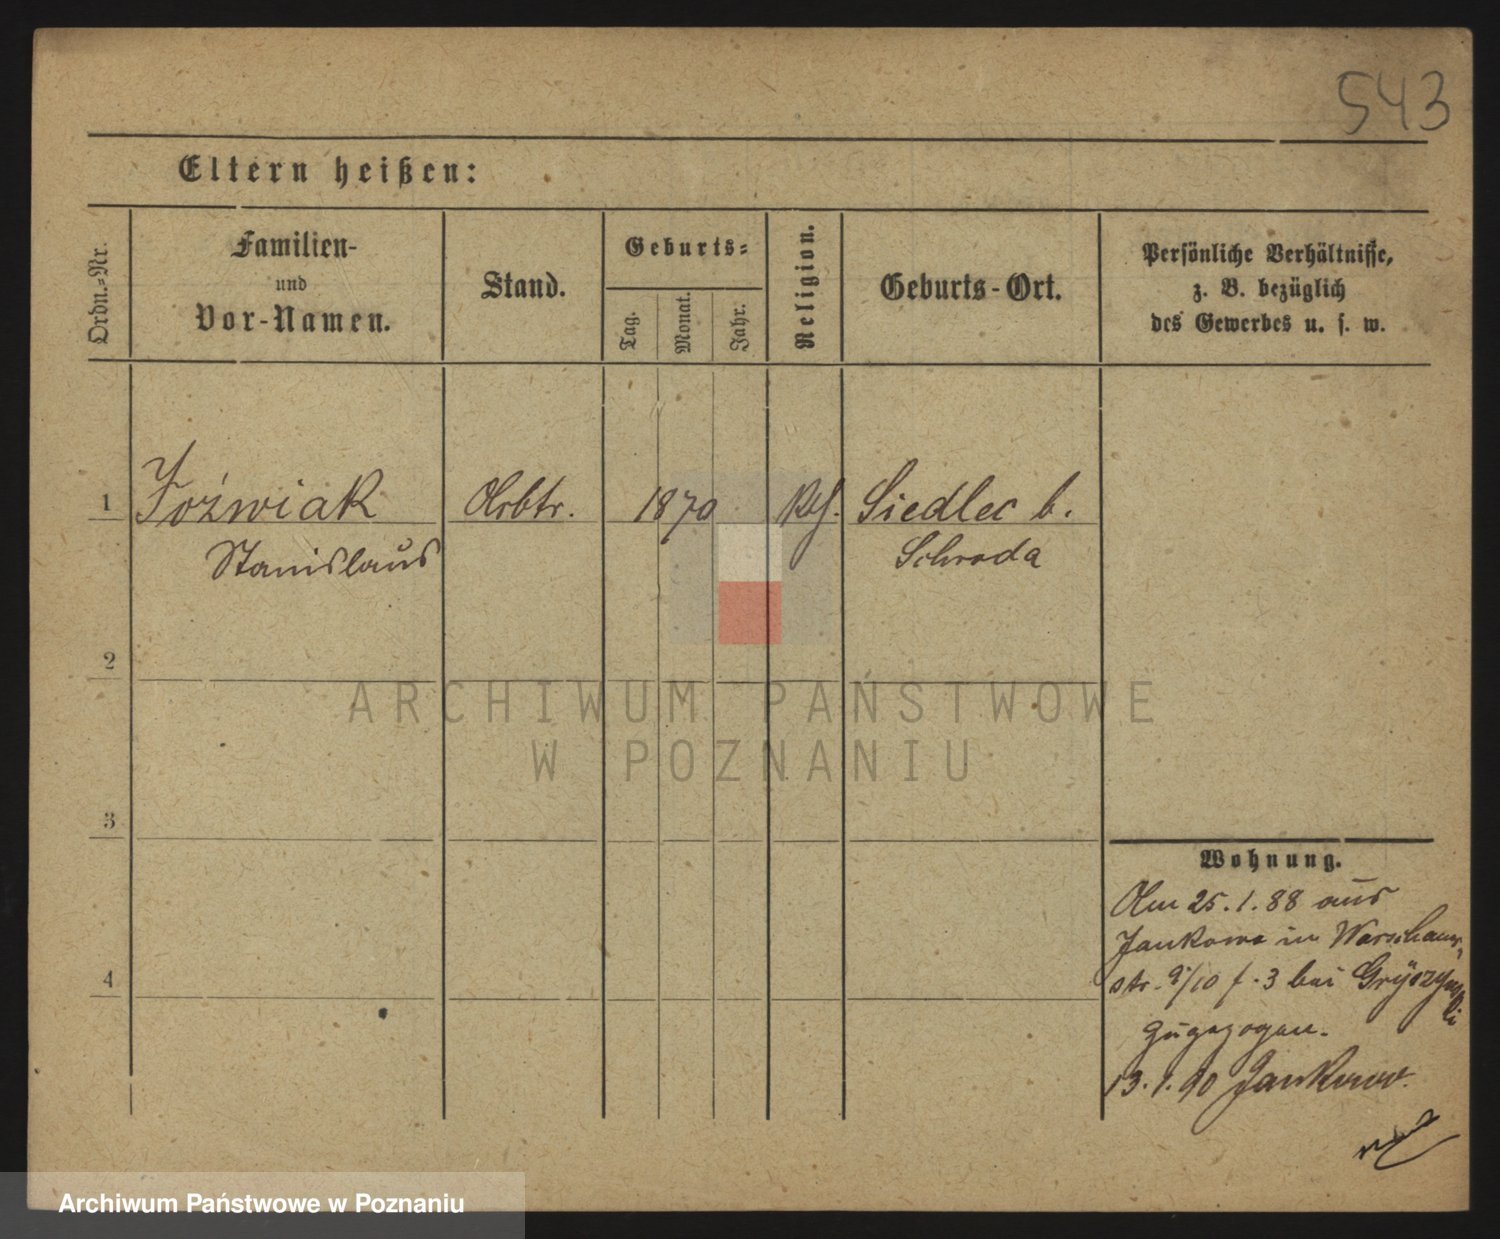 543
Eltern heißen:
Ordn.-Nr.
Familien-
und
Vor-Namen.
Stand.
Geburts-
Tag.
Monat.
Jahr.
Religion.
Geburts-Ort.
Persönliche Verhältnisse,
z. B. bezüglich
des Gewerbes u. s. w.
1 Joźwiak Arbtr. 1870 Kth. Siedlec b.
Stanislaus Schroda
2
ARCHIWUM PAŃSTWOWE
W POZNANIU
3
Wohnung.
Am 25.1.88 aus
Jankowo in Warschauer-
str. 9/10 f. 3 bei
4
zugezogen.
13.1.90 Jankowo.
Archiwum Państwowe w Poznaniu